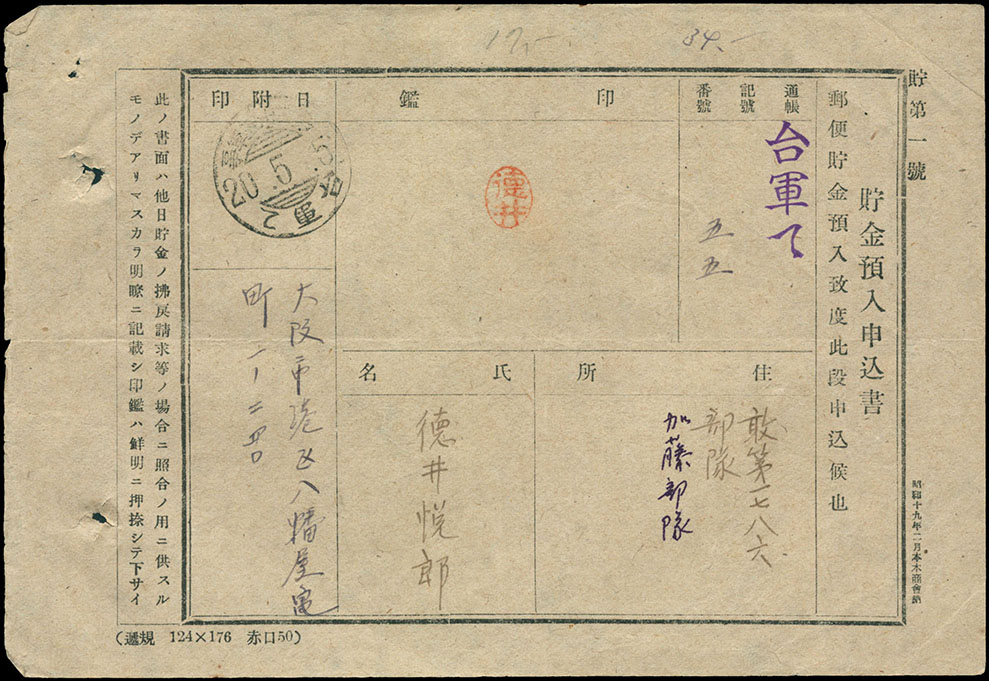 17,-
34.-
貯第一號
貯金預入申込書
郵便貯金預入致度此段申込候也
昭和十九年二月本木商會納
通帳
記號
番號
台軍て
五五
印鑑
德井
日附印
20.5.5
軍て
住所
敢第一七八六
部隊
加藤部隊
氏名
德井悦郎
大阪市港区八幡屋
町
此ノ書面ハ他日貯金ノ拂戾請求等ノ場合ニ照合ノ用ニ供スル
モノデアリマスカラ明瞭ニ記載シ印鑑ハ鮮明ニ押捺シテ下サイ
(遞規 124×176 赤口50)